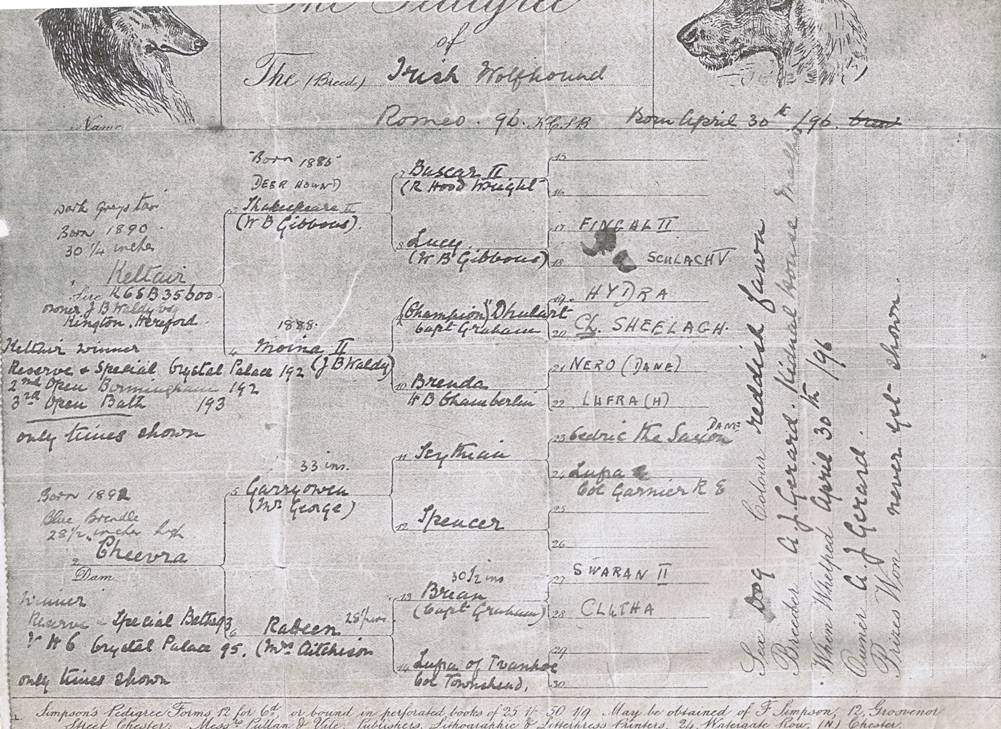 The Pedigree
of
The (Breed) Irish Wolfhound
Name
Romeo. 96. K.C.S.B Born April 30th /96.
Born 1885
DEER HOUND
Dark Grey
Born 1890.
30 1/4 inches
Keltair
Sire KCSB 35600.
owner J B Waldy Esq
Kington, Hereford.
Keltair winner
Reserve & Special Crystal Palace 192
2nd Open Birmingham 192
3rd Open Bath 193
only times shown
Born 1892
Blue Brindle
28 1/2 inches high
2 Cheevra
Dam
Winner
Reserve & Special Bath 93
H C Crystal Palace 95.
only times shown
Shakespeare II
(W B Gibbons).
1888.
4 Moina II
(J B Waldy)
33 ins.
5 Garryowen
(Mr George)
6 Rateen
(Mrs Aitchison
7 Buscar II
(R Hood Wright
8 Lucy
(W B Gibbons)
(Champion) Dhulart
Capt Graham
10 Brenda
W B Chamberlin
11 Scythian
12 Spencer
30 1/2 ins
13 Brian
(Capt Graham)
14 Lufra of Ivanhoe
Col Townshend.
15
16
17 FINGAL II
18 SCHLACH V
19 HYDRA
20 Ch. SHEELAGH.
21 NERO (DANE)
22 LUFRA (H)
23 Cedric the Saxon DANE
24 Lufra
Col Garnier R E
25
26
27 SWARAN II
28 CLLTHA
29
30
Sex Dog Colour reddish fawn
Breeder A. J. Gerard. House
When Whelped April 30th /96
Owner A. J Gerard.
Prizes Won never yet shown.
Simpson's Pedigree Forms 12 for 6d, or bound in perforated books of 25 1/- 50 1/9. May be obtained of F. Simpson, 12, Grosvenor
Street, Chester; Messrs Pullan & Vale, Publishers, Lithographic & Letterpress Printers, 24, Watergate Row, (N) Chester.